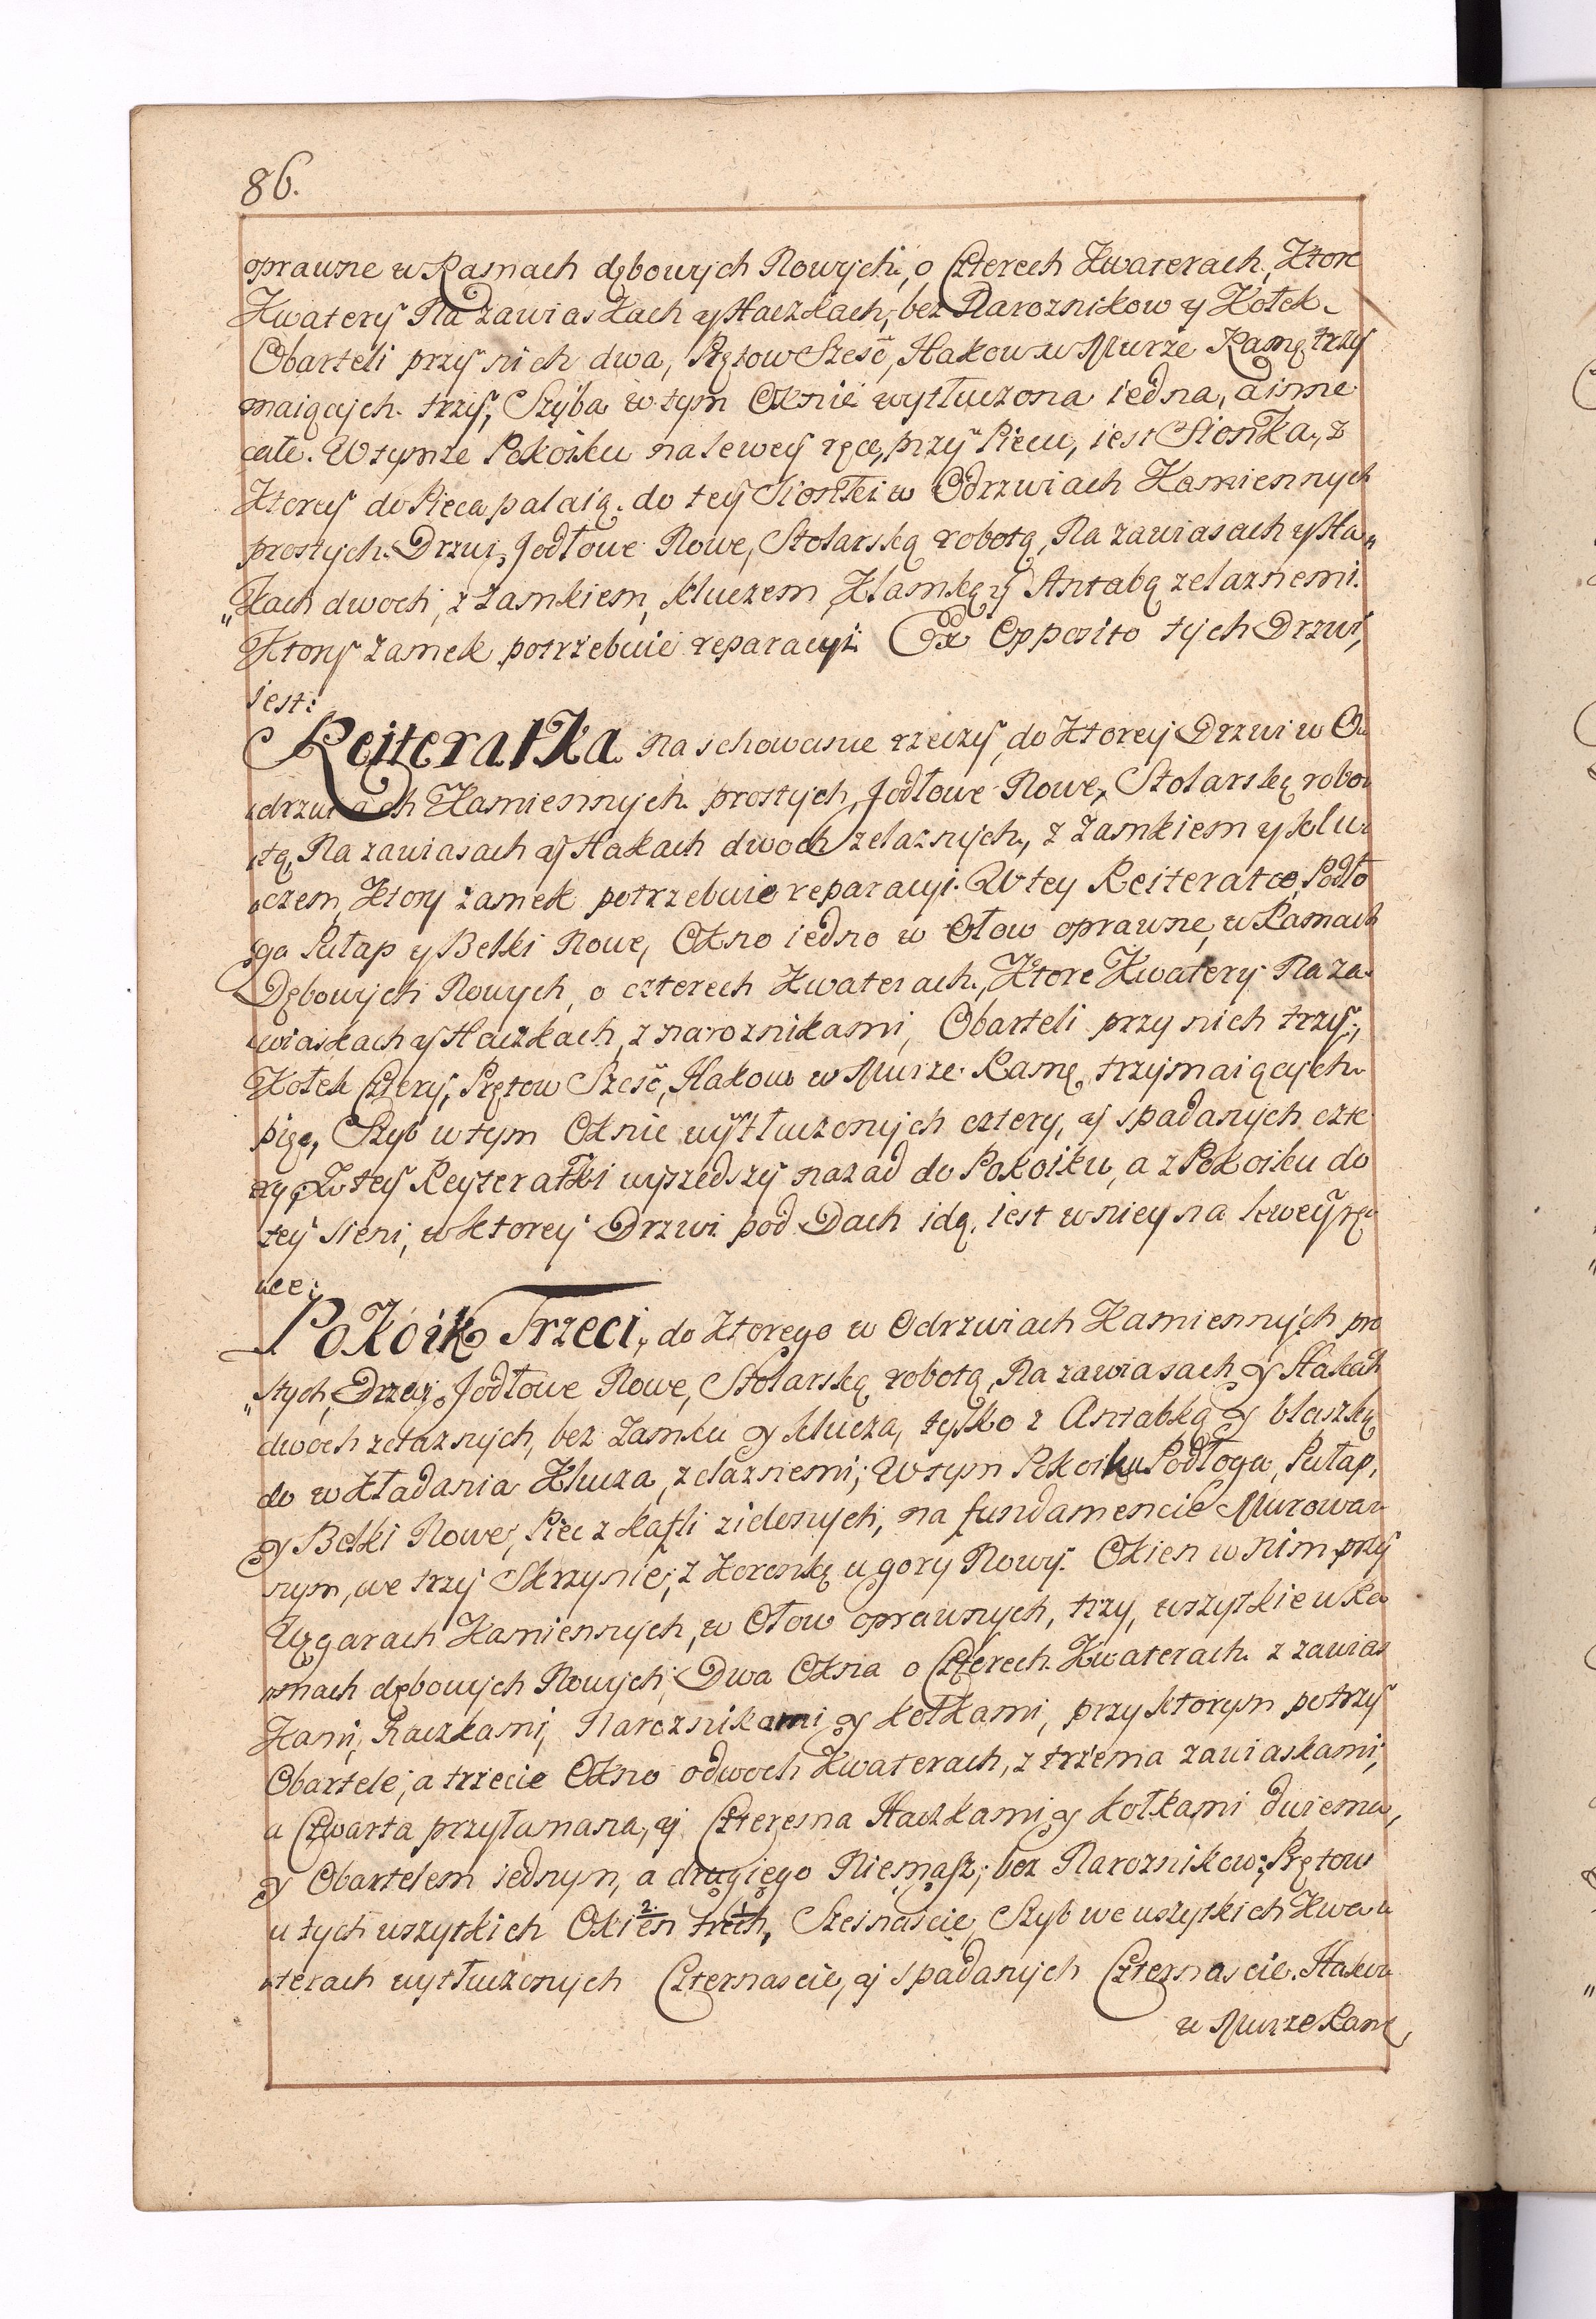 86.
oprawne w Ramach dębowych Nowych, o Czterech Kwaterach, Ktore
Kwatery Na zawiaskach y Haczkach, bez Naroznikow y Kołek.
Obarteli przy nich dwa, Prętow Sześć, Hakow w Murze Ramę trzy
maiących trzy, Szyba w tym Oknie wytłuczona iedna, a inne
całe. W tymze Pokoiku na lewey ręce, przy Piecu, iest Sionka, z
Ktorey do Pieca palaią. do tey Sionki w Odrzwiach Kamiennych
prostych Drzwi Jodłowe Nowe, Stolarską robotą, Na zawiasach y Ha„
„kach dwoch, z zamkiem, kluczem, Klamką y Antabą zelaznemi.
Ktory zamek potrzebuie reparacyi. Ex Opposito tych Drzwi,
iest:
Reiteratka na schowanie rzeczy, do Ktorey Drzwi w O„
„drzwiach Kamiennych prostych, Jodłowe Nowe, Stolarską robo„
„tą, Na zawiasach y Hakach dwoch zelaznych, z zamkiem y klu„
„czem, Ktory zamek potrzebuie reparacyi. W tey Reiteratce, Podło
ga Pułap y Belki Nowe, Okno iedno w Ołow oprawne, w Ramach
Dębowych Nowych, o czterech Kwaterach, Ktore Kwatery Na za„
„wiaskach y Haczkach, z naroznikami, Obarteli przy nich trzy,
Kołek Cztery, Prętow Sześć, Hakow w Murze Ramę trzymaiących
pięć, Szyb w tym Oknie wytłuczonych cztery, y spadanych czte
ry, Z tey Reyteratki wyszedszy nazad do Pokoiku, a z Pokoiku do
tey sieni, w ktorey Drzwi pod Dach idą, iest w niey na lewey rę„
„ce:
Pokoik Trzeci, do Ktorego w Odrzwiach Kamiennych pro
„stych, Drzwi Jodłowe Nowe, Stolarską robotą, Na zawiasach y Hakach
dwoch zelaznych, bez Zamku y klucza, tylko z Antabką y blaszką
do wkładania Klucza, zelaznemi; W tym Pokoiku Podłoga, Pułap,
y Belki Nowe, Piec z kafli zielonych, na fundamencie Murowa„
nym, we trzy Skrzynie, z Koronką u gory Nowy. Okien w nim przy
Węgarach Kamiennych, w Ołow oprawnych, trzy, wszytkie w Ra
„mach dębowych Nowych, Dwa Okna o Czterech Kwaterach z zawias
Kami, Haczkami, Naroznikami y kołkami, przy ktorym po trzy
Obartele, a trzecie Okno o dwoch Kwaterach, z trzema zawiaskami,
a Czwarta przyłamana, y Czterema Haczkami y kołkami dwiema,
y Obartelem iednym, a drugiego Niemasz, bez Naroznikow, Prętow
u tych wszytkich Okien 2. trech 1., Szesnaście, Szyb we wszytkich Kwa„
„terach wytłuczonych Czternaście, y spadanych Czternaście. Hakow
w Murze Ramę,